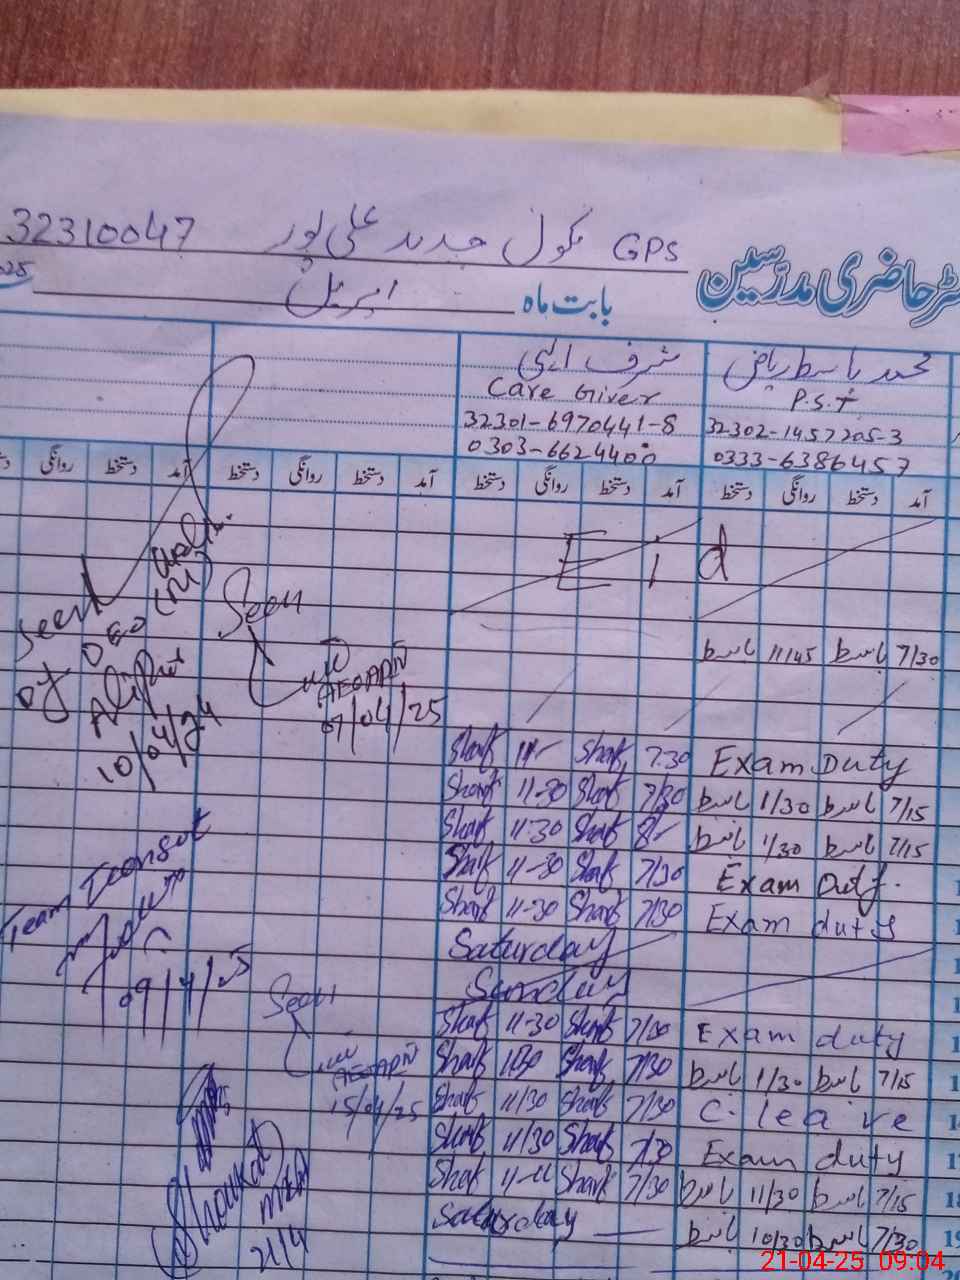 32310047 GPS سکول جدید علی پور
رجسٹر حاضری مدرسین
بابت ماہ اپریل
محمد باسط ریاض
P.S.T
32302-1457205-3
0333-6386457
شرف الہی
Care Giver
32301-6970441-8
0303-6624400
آمد دستخط روانگی دستخط آمد دستخط روانگی دستخط آمد دستخط روانگی دستخط آمد دستخط روانگی
Eid
7/30 باسط 11/45 باسط
Exam Duty 7.30 Sharf Sharf
7/15 باسط 1/30 باسط 7/30 Sharf 11-30 Sharf
7/15 باسط 1/30 باسط Sharf 11-30 Sharf
Exam Duty. 7/30 Sharf 11-30 Sharf
Exam duty 7/30 Sharf 11-30 Sharf
Saturday
Sunday
Exam duty 7/30 Sharf 11-30 Sharf
7/15 باسط 1/30 باسط 7/30 Sharf 1130 Sharf
C. leave 7/30 Sharf 11/30 Sharf
Exam duty 7/30 Sharf 11/30 Sharf
7/15 باسط 11/30 باسط 7/30 Sharf Sharf
7/30 باسط 10/30 باسط Saturday
Seen
AEO APR
07/04/25
Seen
by
DEO
Alipur
10/04/24
Team
09/4/25
Seen
AEO APR
15/04/25
Shoukat
MEA
21/4
21-04-25 09:04